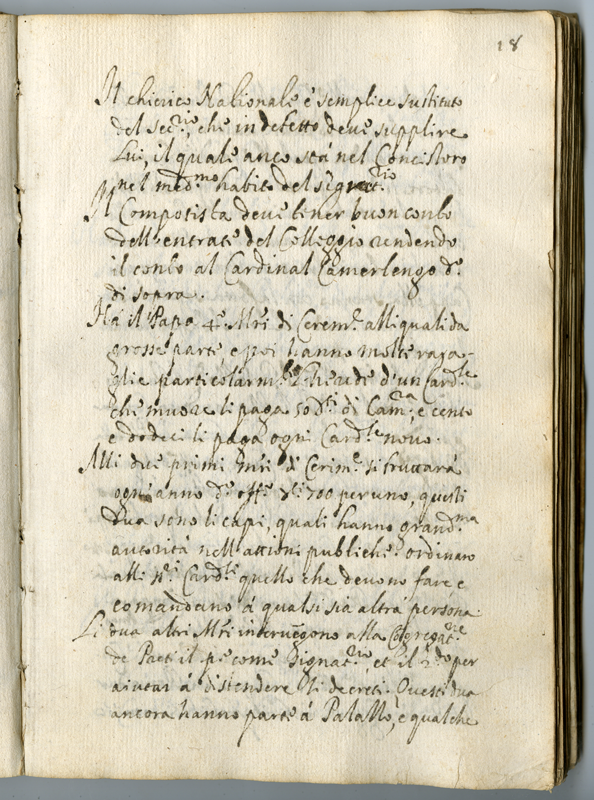 28
Il chierico Nationale è semplice sustituto
del sec.rio, che in defetto deve supplire
Lui, il quale anco stà nel Concistoro
nel med.mo habito del segret.rio
Il Compotista deve tener buon conto
dell'entrate del Colleggio rendendo
il conto al Cardinal Camerlengo d.o
di sopra.
Hà il Papa 4.o Mri di Cerem.e alli quali da
grosse parte e poi hanno molte rega-
glie particolarm.te l'herede d'un Card.le
che muore li paga 50 d.ti di Cam.ra, e cento
e dodeci li paga ogni Card.le novo.
Alli due primi Mri di Cerim.e si fruttarà
ogni anno d.o off.o 700 per uno, questi
dua sono li capi, quali hanno grand.ma
autorità nell'attioni publiche, ordinano
alli Sri Card.li quello che devono fare e
comandano à qualsisia altra persona.
Li dua altri Mri intervegono alla Cogregat.ne
de Paeti il p.o come signat.rio, et il 2.do per
aiutar à distendere li decreti. Questi dua
ancora hanno parte à Palazzo, e qualche